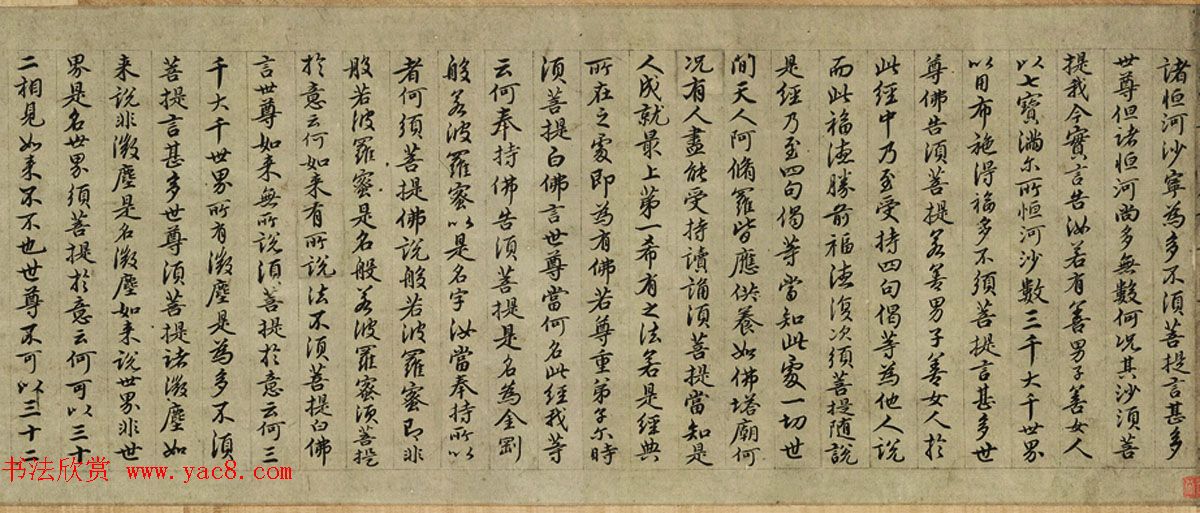 諸恒河沙寧為多不須菩提言甚多
世尊但諸恒河尚多無數何况其沙須菩
提我今實言告汝若有善男子善女人
以七寶滿尓所恒河沙數三千大千世界
以用布施得福多不須菩提言甚多世
尊佛告須菩提若善男子善女人於
此經中乃至受持四句偈等為他人說
而此福德勝前福德復次須菩提隨說
是經乃至四句偈等當知此處一切世
間天人阿脩羅皆應供養如佛塔廟何
况有人盡能受持讀誦須菩提當知是
人成就最上第一希有之法若是經典
所在之處即為有佛若尊重弟子尓時
須菩提白佛言世尊當何名此經我等
云何奉持佛告須菩提是名為金剛
般若波羅蜜以是名字汝當奉持所以
者何須菩提佛說般若波羅蜜即非
般若波羅蜜是名般若波羅蜜須菩提
於意云何如来有所說法不須菩提白佛
言世尊如来無所說須菩提於意云何三
千大千世界所有微塵是為多不須
菩提言甚多世尊須菩提諸微塵如
来說非微塵是名微塵如来說世界非世
界是名世界須菩提於意云何可以三十
二相見如来不不也世尊不可以三十二
书法欣赏 www.yac8.com